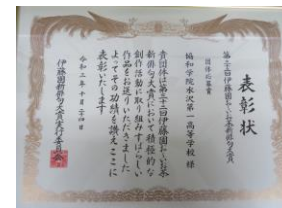 表彰状
第三十一回伊藤園お～いお茶新俳句大賞
団体応募賞
協和学院水沢第一高等学校 様
貴団体は第三十一回伊藤園お～いお茶
新俳句大賞において積極的な
創作活動に取り組みすばらしい
作品をお送りいただきました
よってその功績を讃えここに
表彰いたします
令和二年十月二十四日
伊藤園新俳句大賞実行委員会